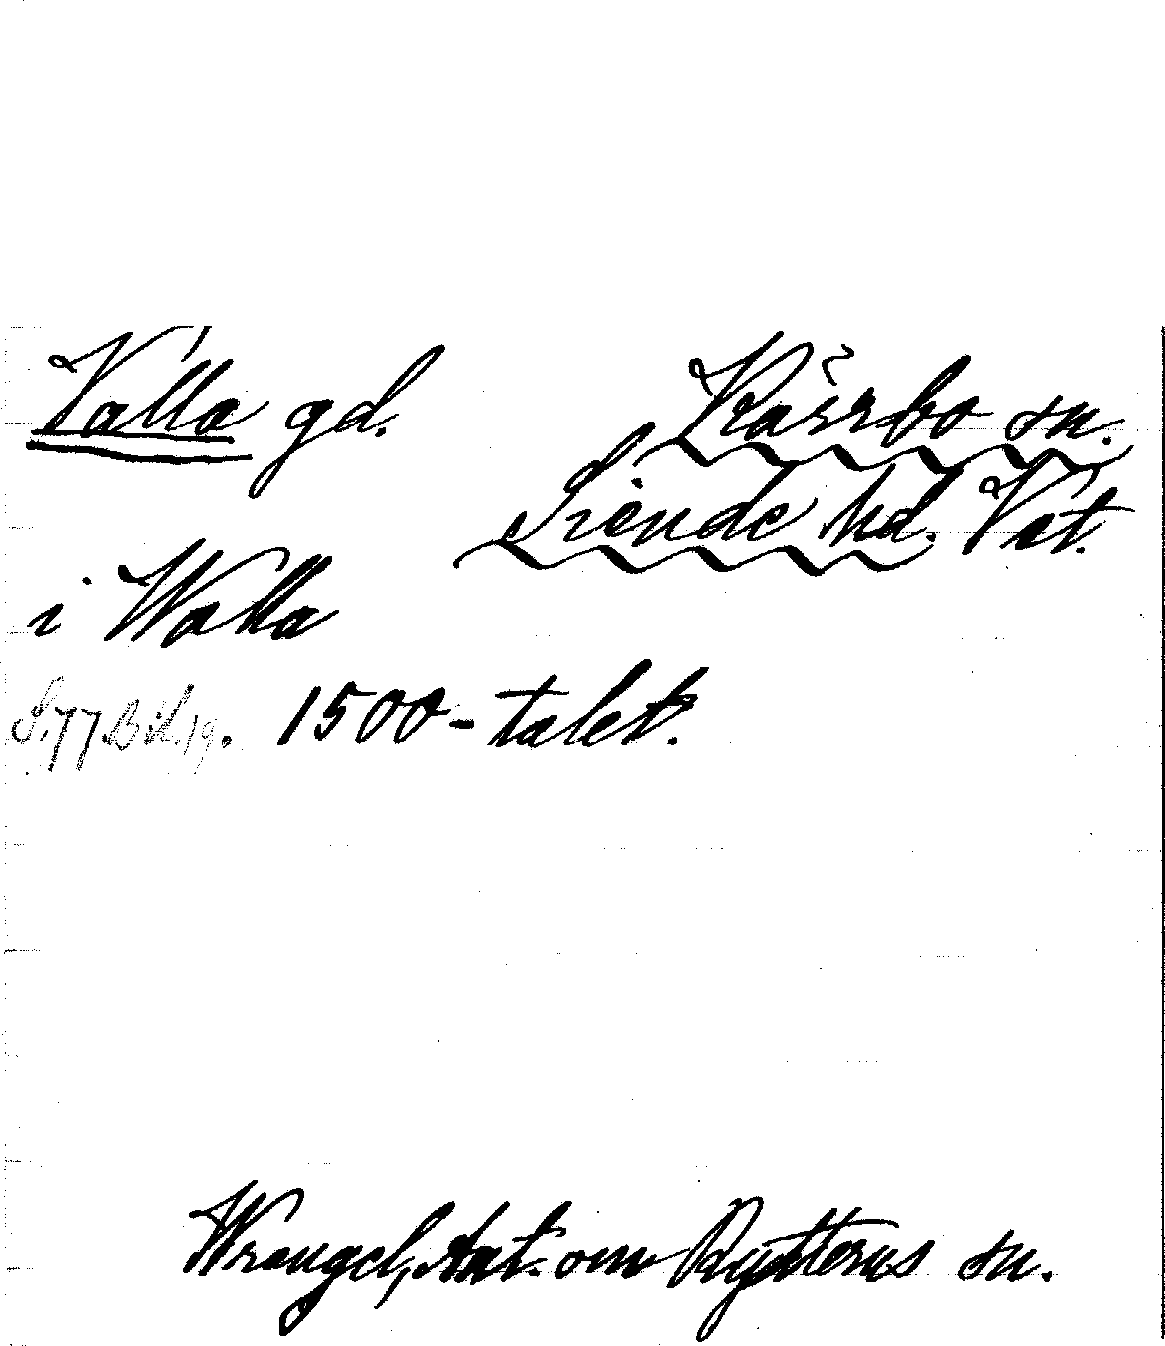 Valla gd.
Kärrbo sn.
Siende hd. Vst.
i Walla
S. 77 Bil. 19. 1500-talet.
Wrangel, Ant. om Rytterns sn.